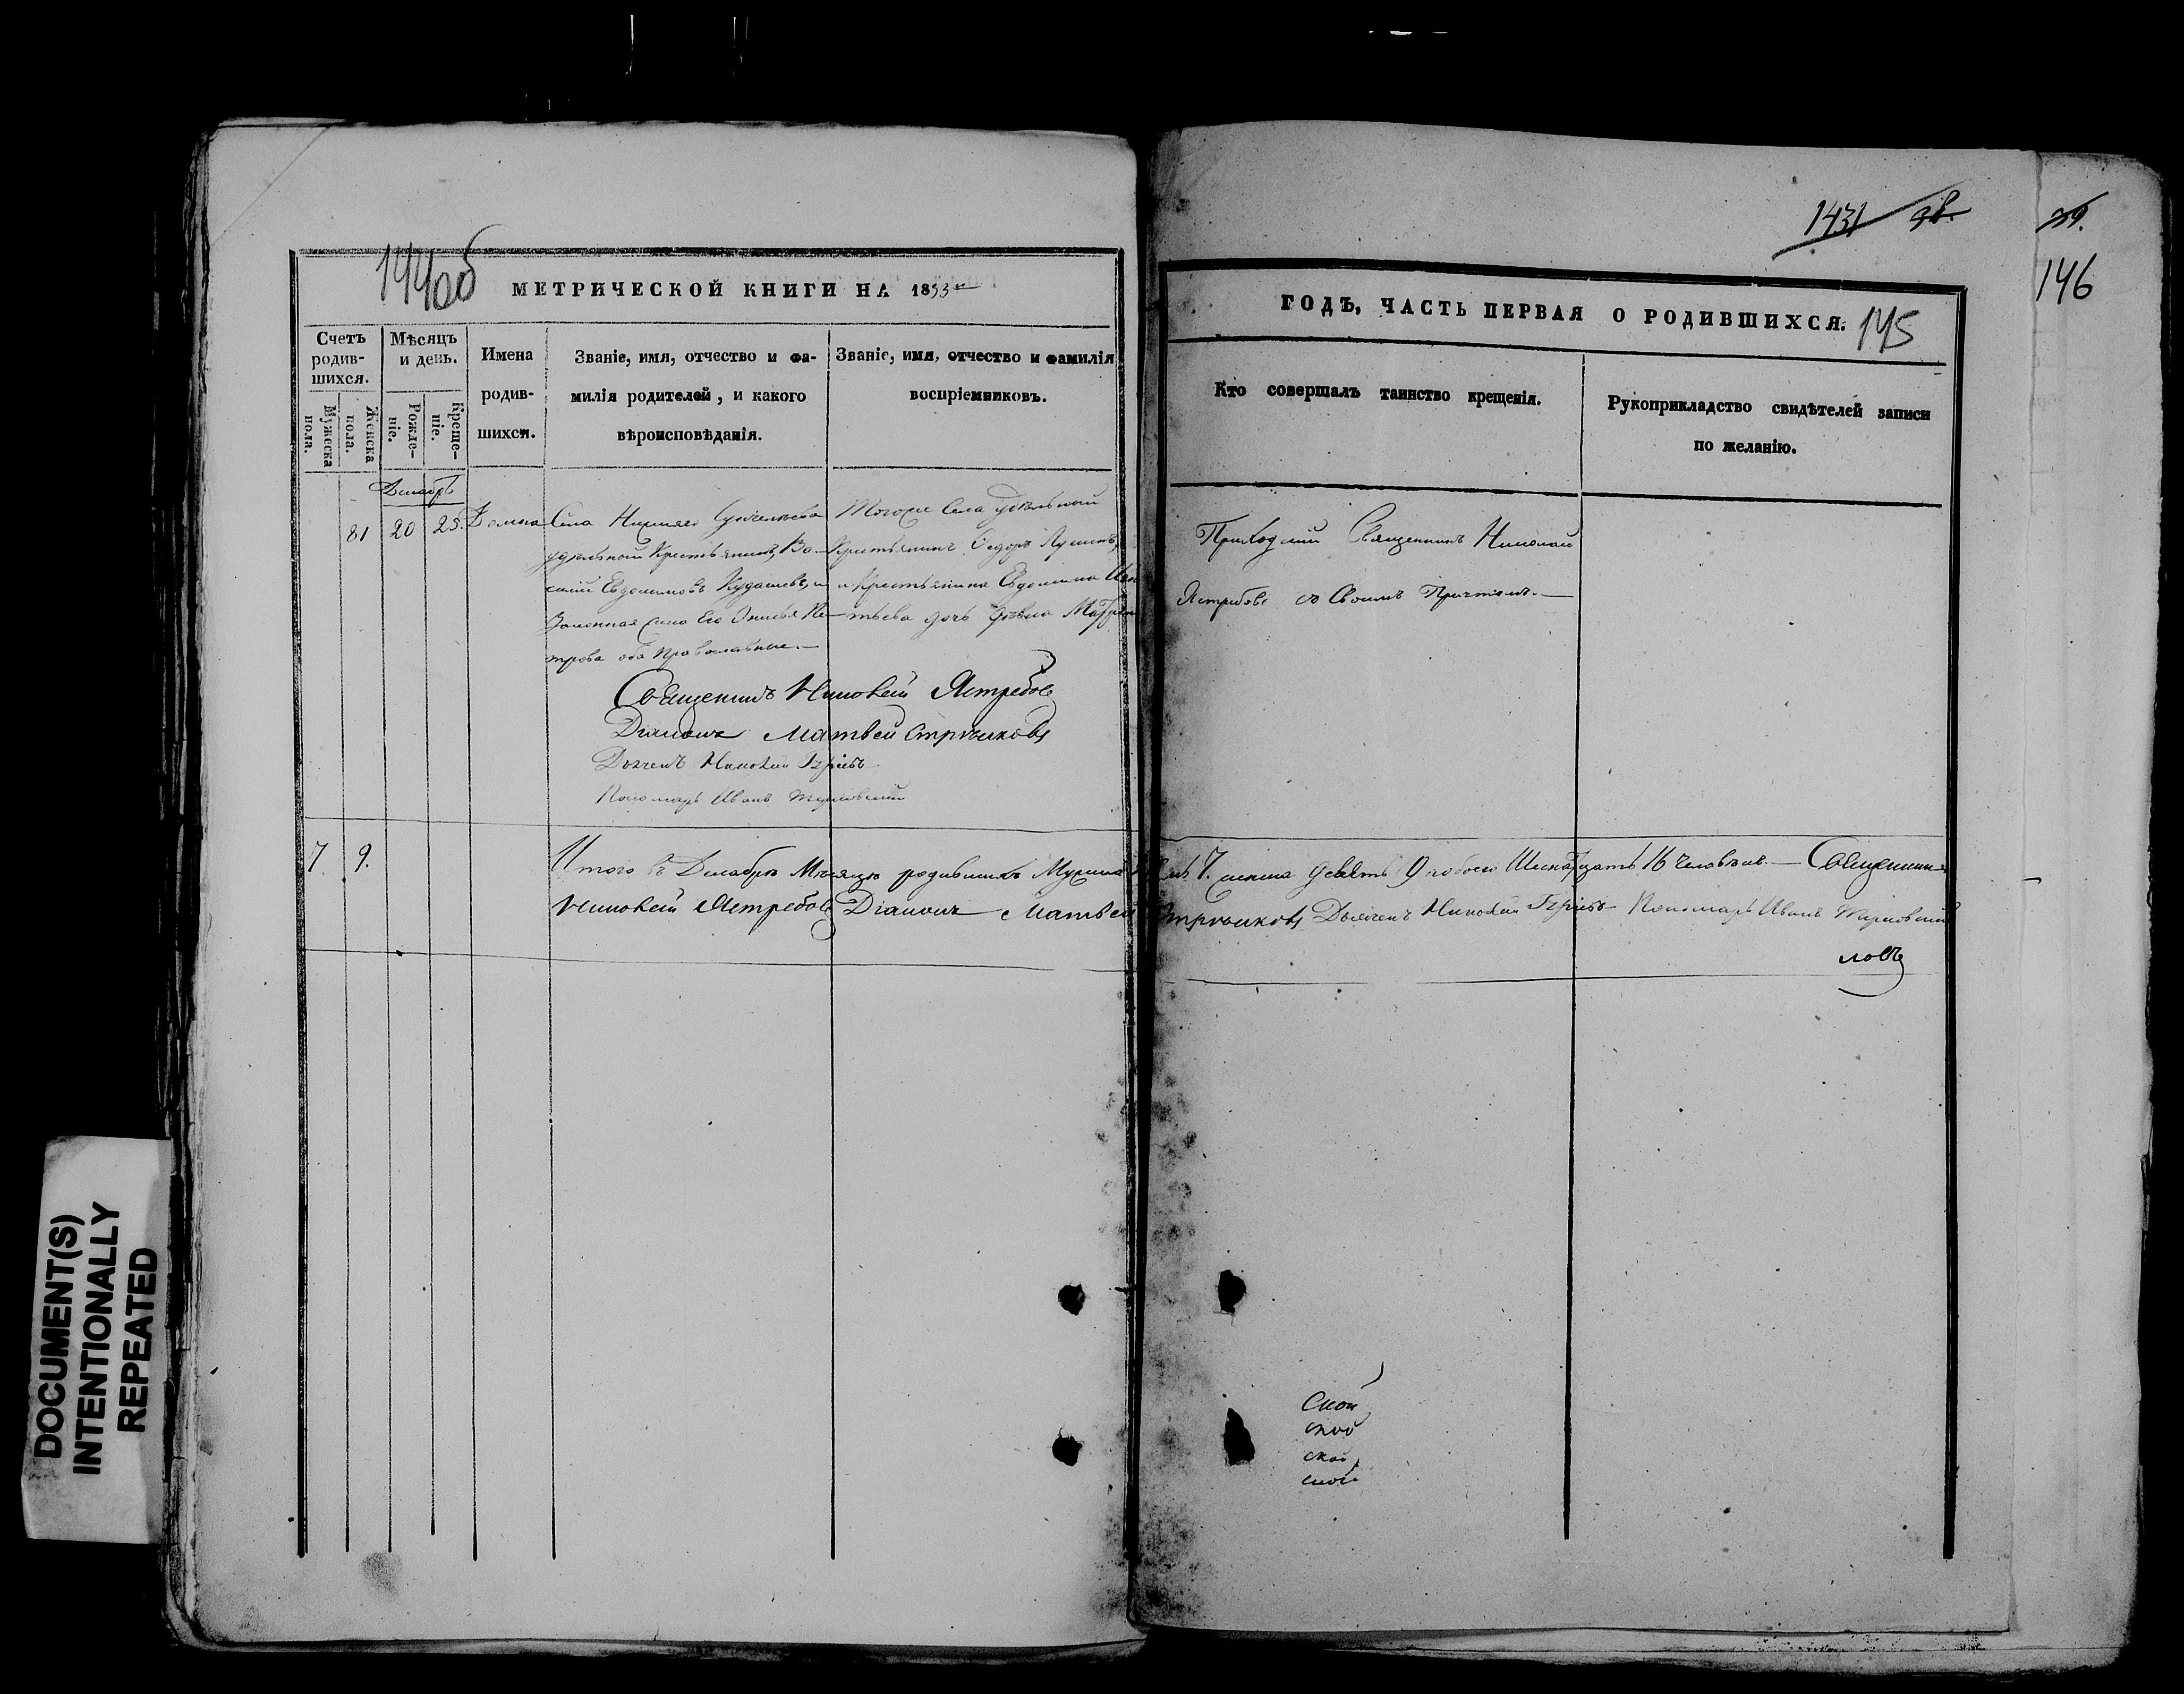 144об
МЕТРИЧЕСКОЙ КНИГИ НА 1853
Счетъ родив-шихся.
Мужеска пола.
Женска пола.
Мѣсяцъ и день.
Рожде-ніе.
Креще-ніе.
Имена родив-шихся.
Званіе, имя, отчество и фа-
милія родителей, и какого
вѣроисповѣданія.
Званіе, имя, отчество и фамилія
воспріемниковъ.
Декабрь
81 20 25. Домна
Села
удѣльный Крестьянинъ Ва-
силій Евдокимовъ Кудашевъ, и
Законная жена Его Пе-
трова оба Православные.—
Тогоже Села удѣльный
Крестьянинъ Ѳедоръ
и Крестьянина Евдокима
дочь дѣвка
Священникъ Николай Ястребовъ
Діаконъ Матвей Стручковъ
Дьячекъ Николай
Пономарь Иванъ
7 9.
Итого въ Декабрѣ Мѣсяцѣ родившихъ Мужеска
7. женска девять 9 обоего Шеснатцать 16 человѣкъ.— Священникъ
Николай Ястребовъ Діаконъ Матвей
Стручковъ Дьячекъ Николай Пономарь Иванъ
ловъ
1431 38.
ГОДЪ, ЧАСТЬ ПЕРВАЯ О РОДИВШИХСЯ.
145
Кто совершалъ таинство крещенія.
Рукоприкладство свидѣтелей записи
по желанію.
Приходскій Священникъ Николай
Ястребовъ съ Своимъ Причтомъ.—
ской
ской
ской
ской
39.
146
DOCUMENT(S)
INTENTIONALLY
REPEATED